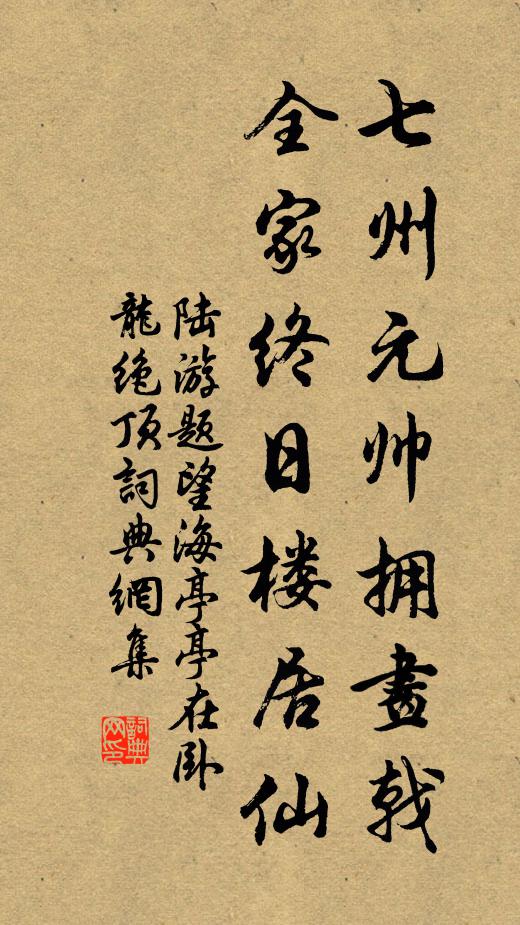 七州元帅拥畫戟
全家终日楼居仙
陆游题望海亭亭在卧
龍绝顶詞典網集
詞典网印